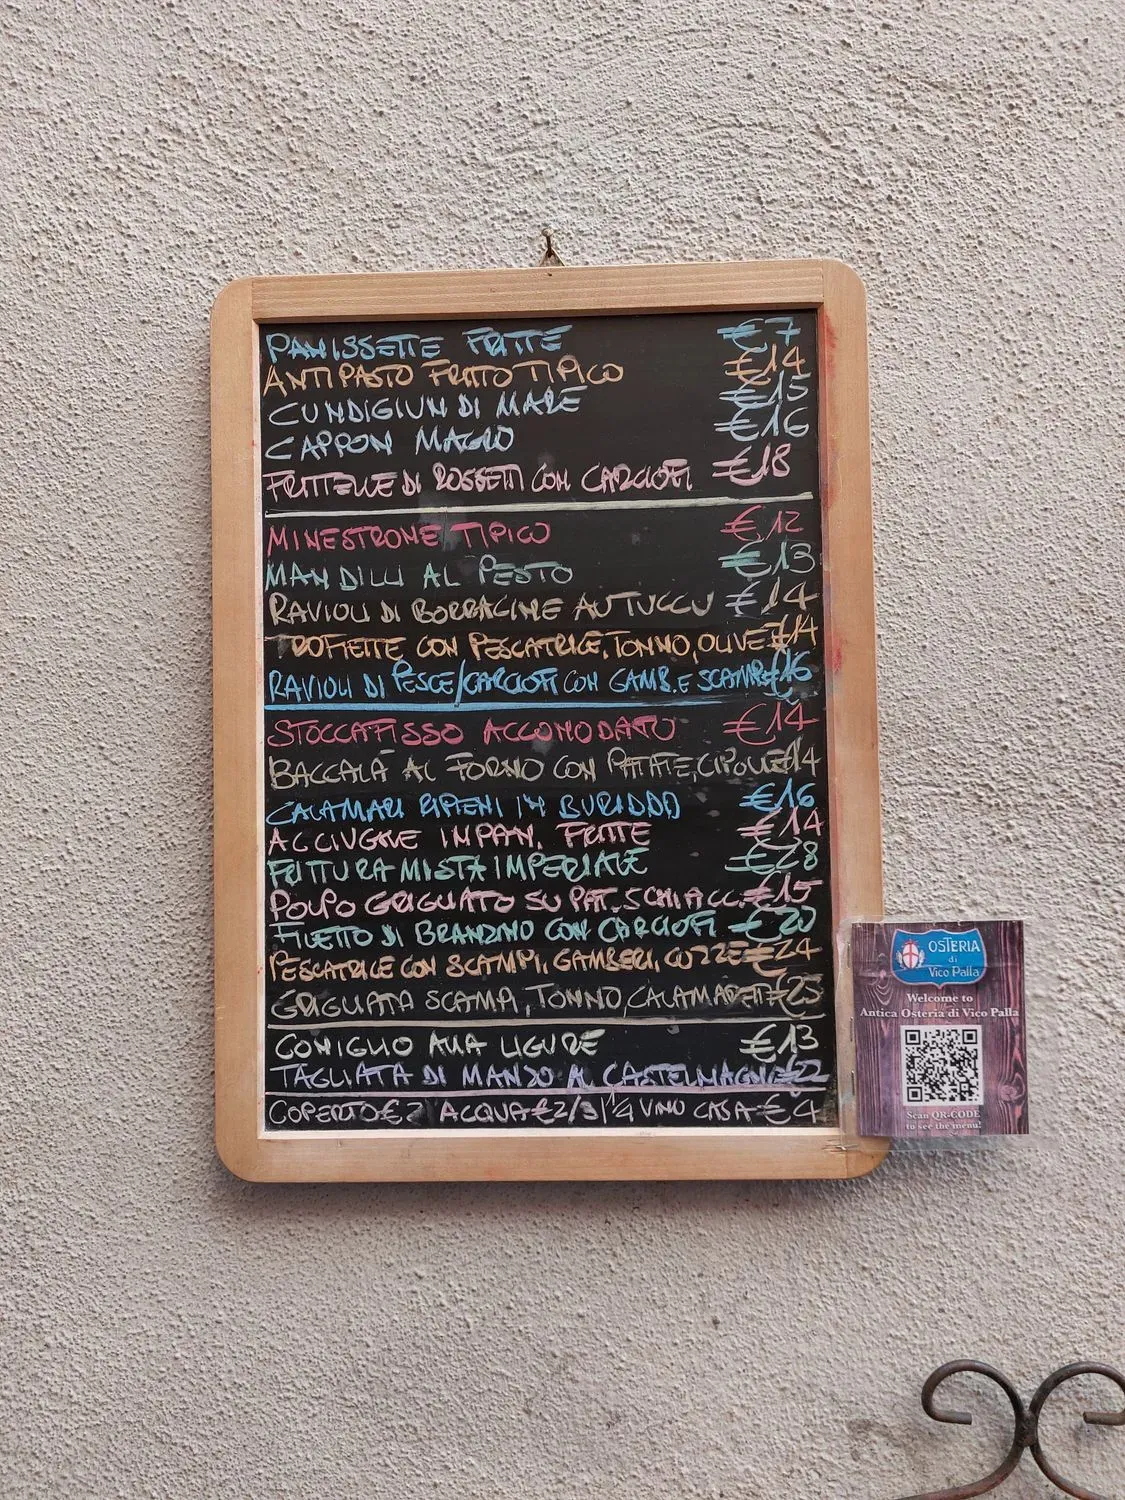 PANISSETTE FRITTE €7
ANTIPASTO FRITTO TIPICO €14
CUNDIGIUN DI MARE €15
CAPPON MAGRO €16
FRITTELLE DI ROSSETTI CON CARCIOFI €18
MINESTRONE TIPICO €12
MANDILLI AL PESTO €13
RAVIOLI DI BORRAGINE AU TUCCU €14
TROFIETTE CON PESCATRICE, TONNO, OLIVE €14
RAVIOLI DI PESCE/CARCIOFI CON GAMB. E SCAMPI €16
STOCCAFISSO ACCOMODATO €14
BACCALÀ AL FORNO CON PATATE, CIPOLLE €14
CALAMARI RIPIENI IN BURIDDA €16
ACCIUGHE IMPAN. FRITTE €14
FRITTURA MISTA IMPERIALE €28
POLPO GRIGLIATO SU PAT. SCHIACC. €15
FILETTO DI BRANZINO CON CARCIOFI €20
PESCATRICE CON SCAMPI, GAMBERI, COZZE €24
GRIGLIATA SCAMPI, TONNO CALAMARETTI €25
CONIGLIO ALLA LIGURE €13
TAGLIATA DI MANZO AL CASTELMAGNO €22
COPERTO €2 ACQUA €2/3 | 1/4 VINO CASA €4
OSTERIA
di
Vico Palla
Welcome to
Antica Osteria di Vico Palla
Scan QR-CODE
to see the menu!